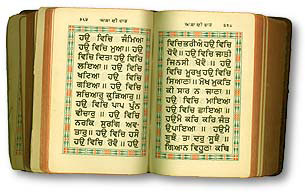 ਆਸਾ ਦੀ ਵਾਰ
ਹਉ ਵਿਚਿ ਜੰਮਿਆ
ਹਉ ਵਿਚਿ ਮੁਆ॥ ਹਉ
ਵਿਚਿ ਦਿਤਾ ਹਉ ਵਿਚਿ
ਲਇਆ॥ ਹਉ ਵਿਚਿ
ਖਟਿਆ ਹਉ ਵਿਚਿ
ਗਇਆ॥ ਹਉ ਵਿਚਿ
ਸਚਿਆਰੁ ਕੂੜਿਆਰੁ॥
ਹਉ ਵਿਚਿ ਪਾਪ ਪੁੰਨ
ਵੀਚਾਰੁ॥ ਹਉ ਵਿਚਿ
ਨਰਕਿ ਸੁਰਗਿ ਅਵ-
ਤਾਰੁ॥ ਹਉ ਵਿਚਿ ਹਸੈ
ਹਉ ਵਿਚਿ ਰੋਵੈ॥ ਹਉ
ਆਸਾ ਦੀ ਵਾਰ
ਵਿਚਿ ਭਰੀਐ ਹਉ ਵਿਚਿ
ਧੋਵੈ॥ ਹਉ ਵਿਚਿ ਜਾਤੀ
ਜਿਨਸੀ ਖੋਵੈ॥ ਹਉ
ਵਿਚਿ ਮੂਰਖੁ ਹਉ ਵਿਚਿ
ਸਿਆਣਾ॥ ਮੋਖ ਮੁਕਤਿ
ਕੀ ਸਾਰ ਨ ਜਾਣਾ॥
ਹਉ ਵਿਚਿ ਮਾਇਆ
ਹਉ ਵਿਚਿ ਛਾਇਆ॥
ਹਉਮੈ ਕਰਿ ਕਰਿ ਜੰਤ
ਉਪਾਇਆ॥ ਹਉਮੈ
ਬੂਝੈ ਤਾ ਦਰੁ ਸੂਝੈ॥
ਗਿਆਨ ਵਿਹੂਣਾ ਕਥਿ